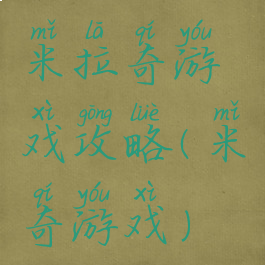 mǐ lā qí yóu
米拉奇游
xì gōng lüè mǐ
戏攻略(米
qí yóu xì
奇游戏)